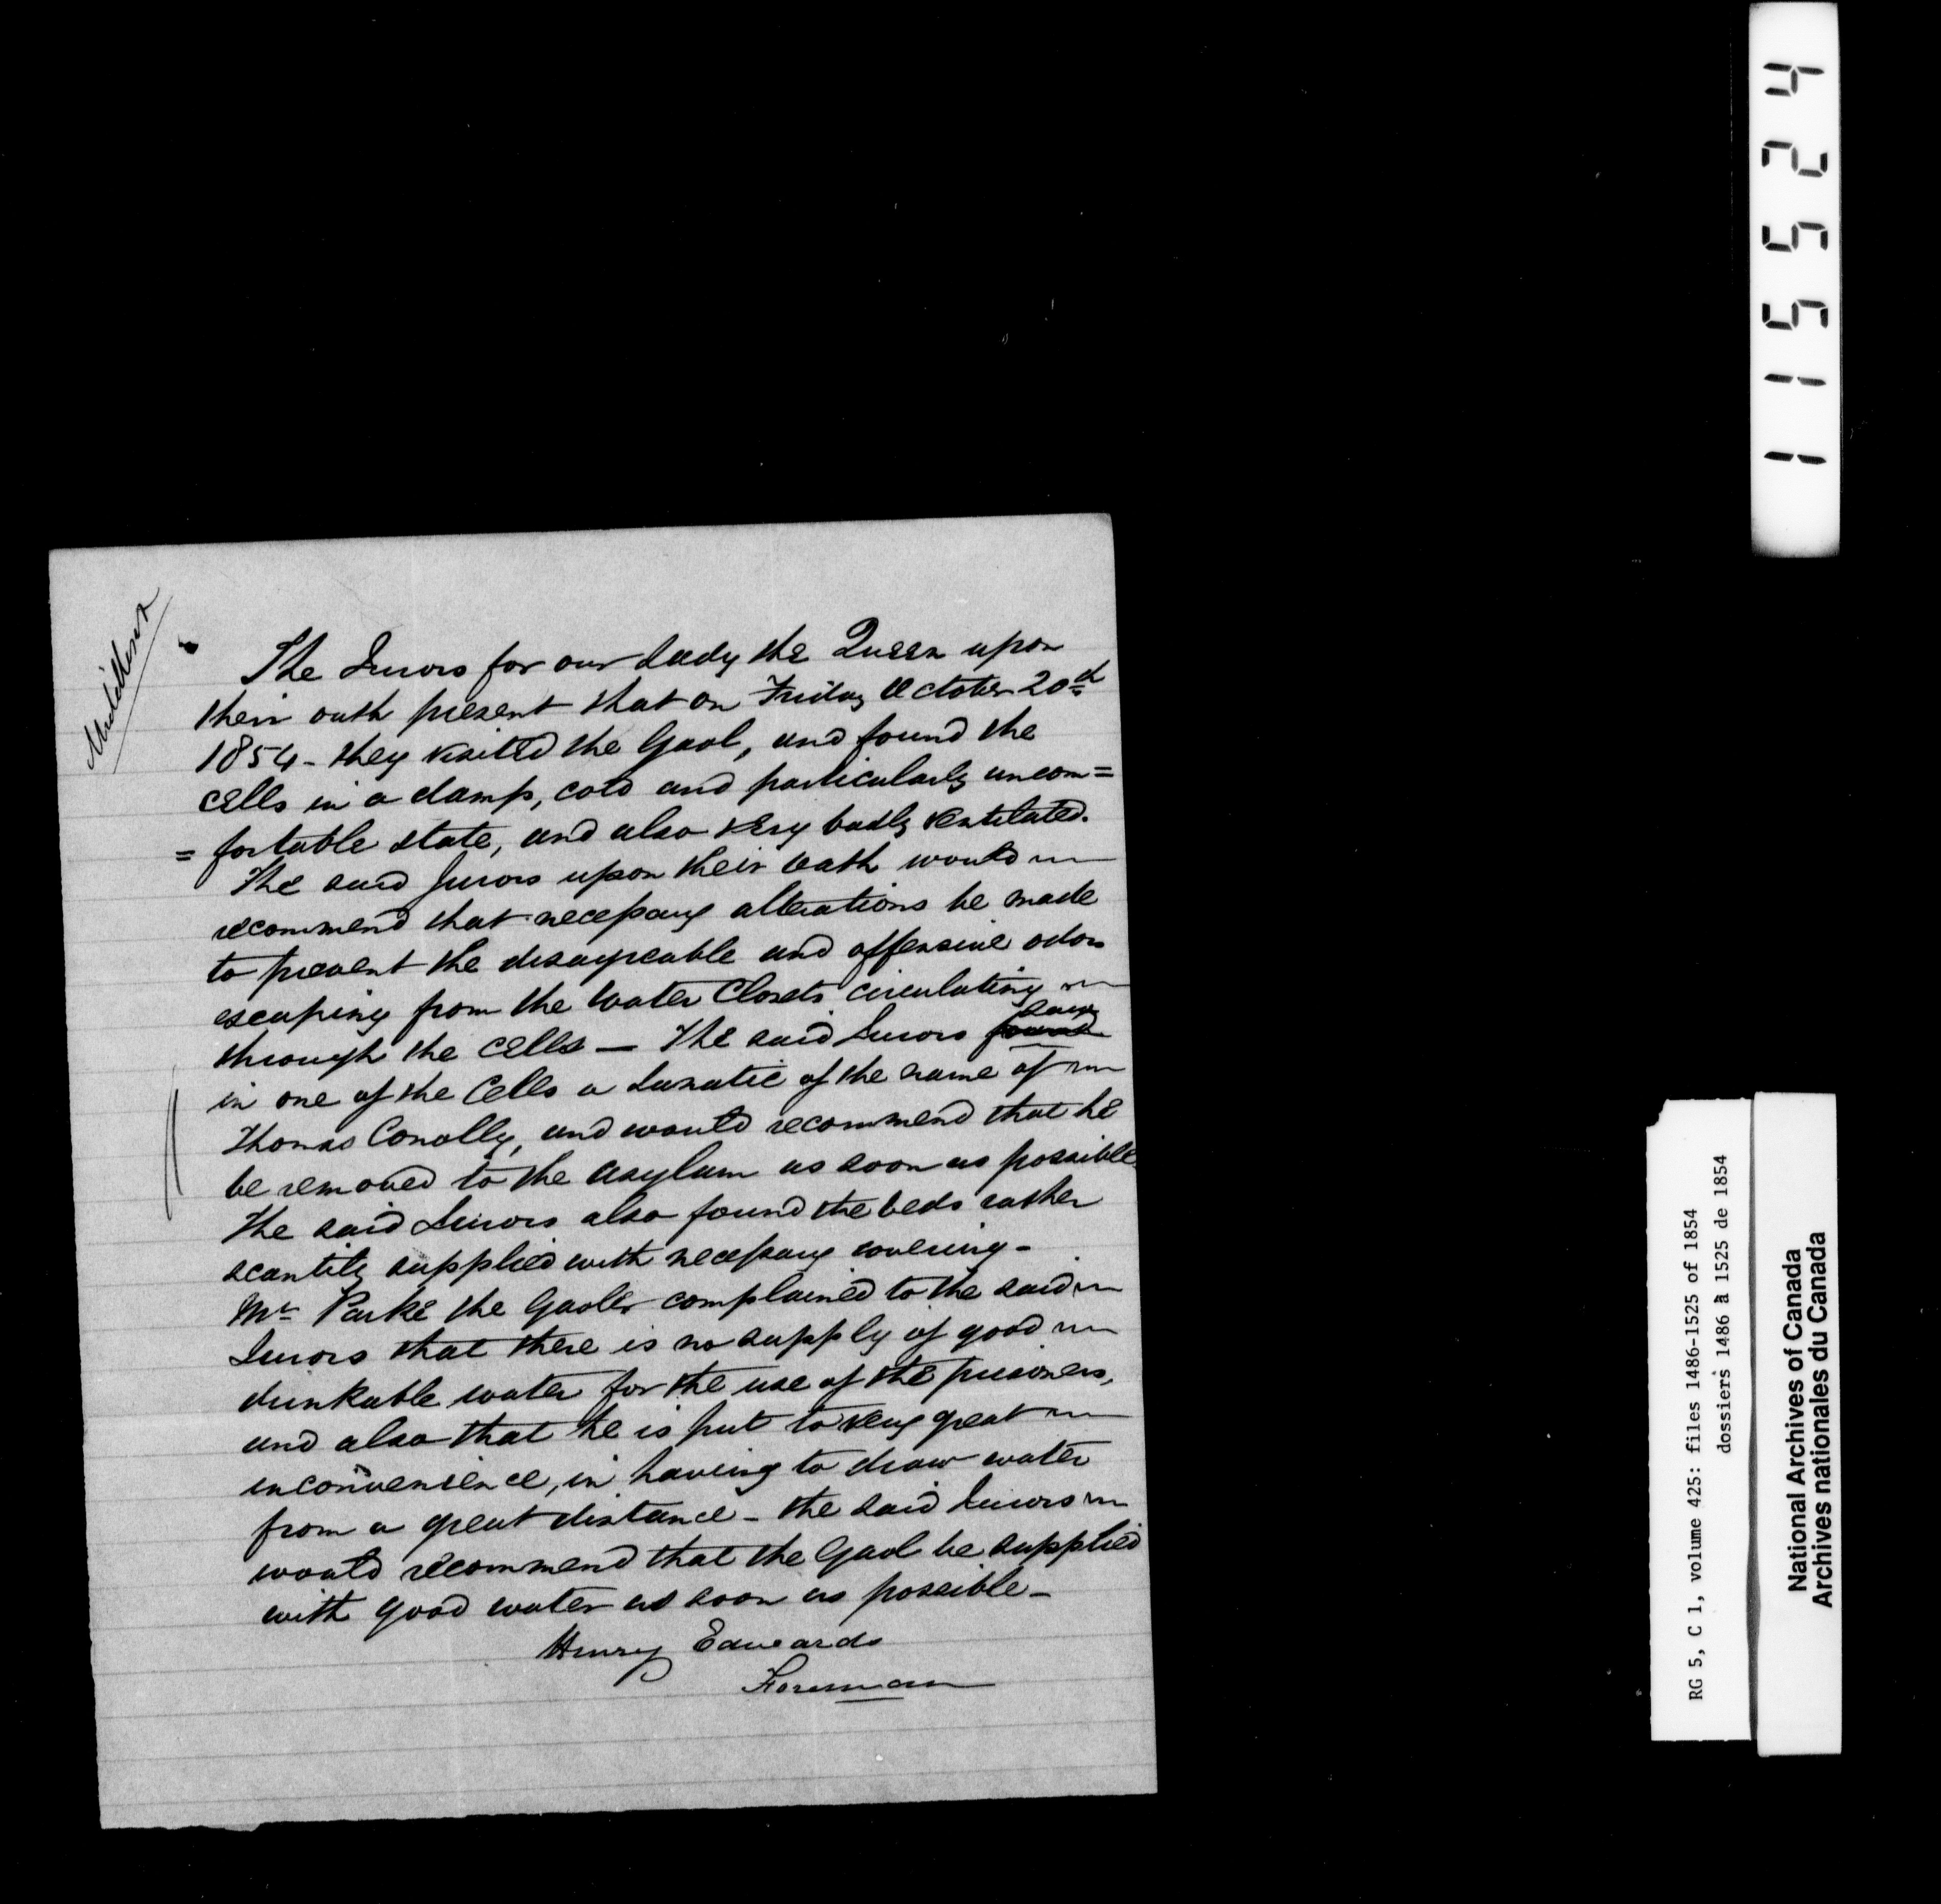 The Jurors for our Lady the Queen upon
their oath present that on Friday October 20th
1854 - they visited the Gaol, and found the
cells in a damp, cold and particularly uncom=
=fortable state, and also very badly ventilated.
The said Jurors upon their oath would
recommend that necessary alterations be made
to prevent the disagreable and offensive odors
escaping from the Water Closets circulating
through the cells — The said Jurors found saw
in one of the Cells a Lunatic of the name of
Thomas Conolly, and would recommend that he
be removed to the Asylum as soon as possible.
The said Jurors also found the beds rather
scantily supplied with necessary covering -
Mr Parke the Gaoler complained to the said
Jurors that there is no supply of good
drinkable water for the use of the prisoners,
and also that he is put to very great
inconvenience, in having to draw water
from a great distance - the said Jurors
would recommend that the Gaol be supplied
with good water as soon as possible -
Henry Edwards
Foreman
115524
RG 5, C 1, volume 425: files 1486-1525 of 1854
dossiers 1486 à 1525 de 1854
National Archives of Canada
Archives nationales du Canada